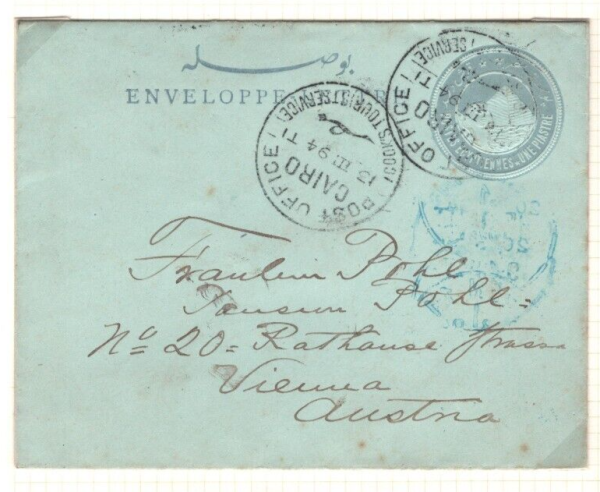 بوصله
ENVELOPPE LETTRE
POST OFFICE (COOK'S TOURIST SERVICE)
CAIRO
13 XII 94 T1
POSTES EGYPTIENNES - UNE PIASTRE
Fräulein Pohl
Pension Pohl -
No 20 = Rathause Strasse
Vienna
Austria